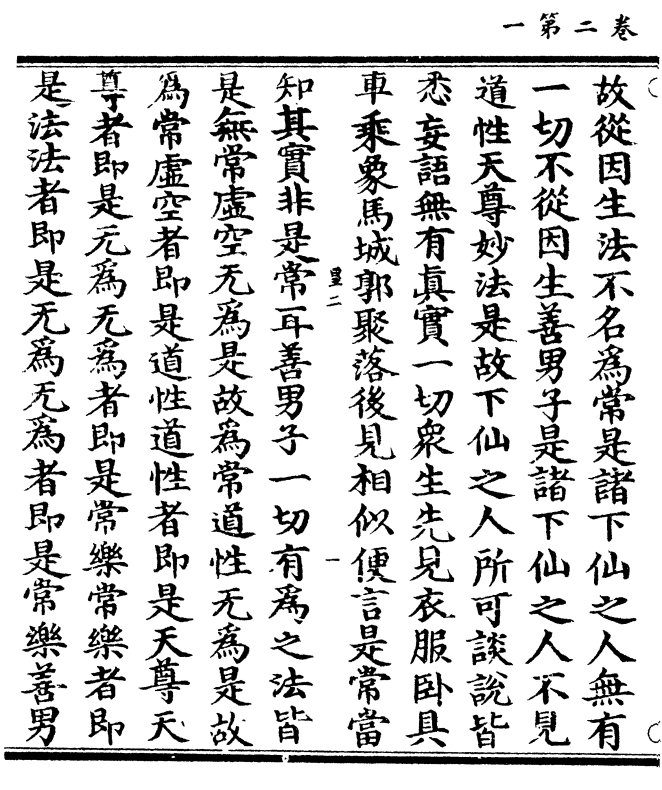 卷二第一
故從因生法不名為常是諸下仙之人無有
一切不從因生善男子是諸下仙之人不見
道性天尊妙法是故下仙之人所可談說皆
悉妄語無有真實一切衆生先見衣服卧具
車乘象馬城郭聚落後見相似便言是常當
皇二
一
知其實非是常耳善男子一切有為之法皆
是無常虛空无為是故為常道性无為是故
為常虛空者即是道性道性者即是天尊天
尊者即是无為无為者即是常樂常樂者即
是法法者即是无為无為者即是常樂善男